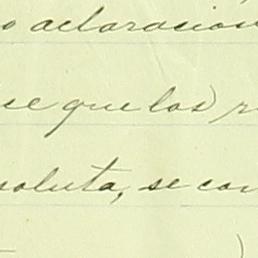 o aclaración
se que los r
soluta, se con